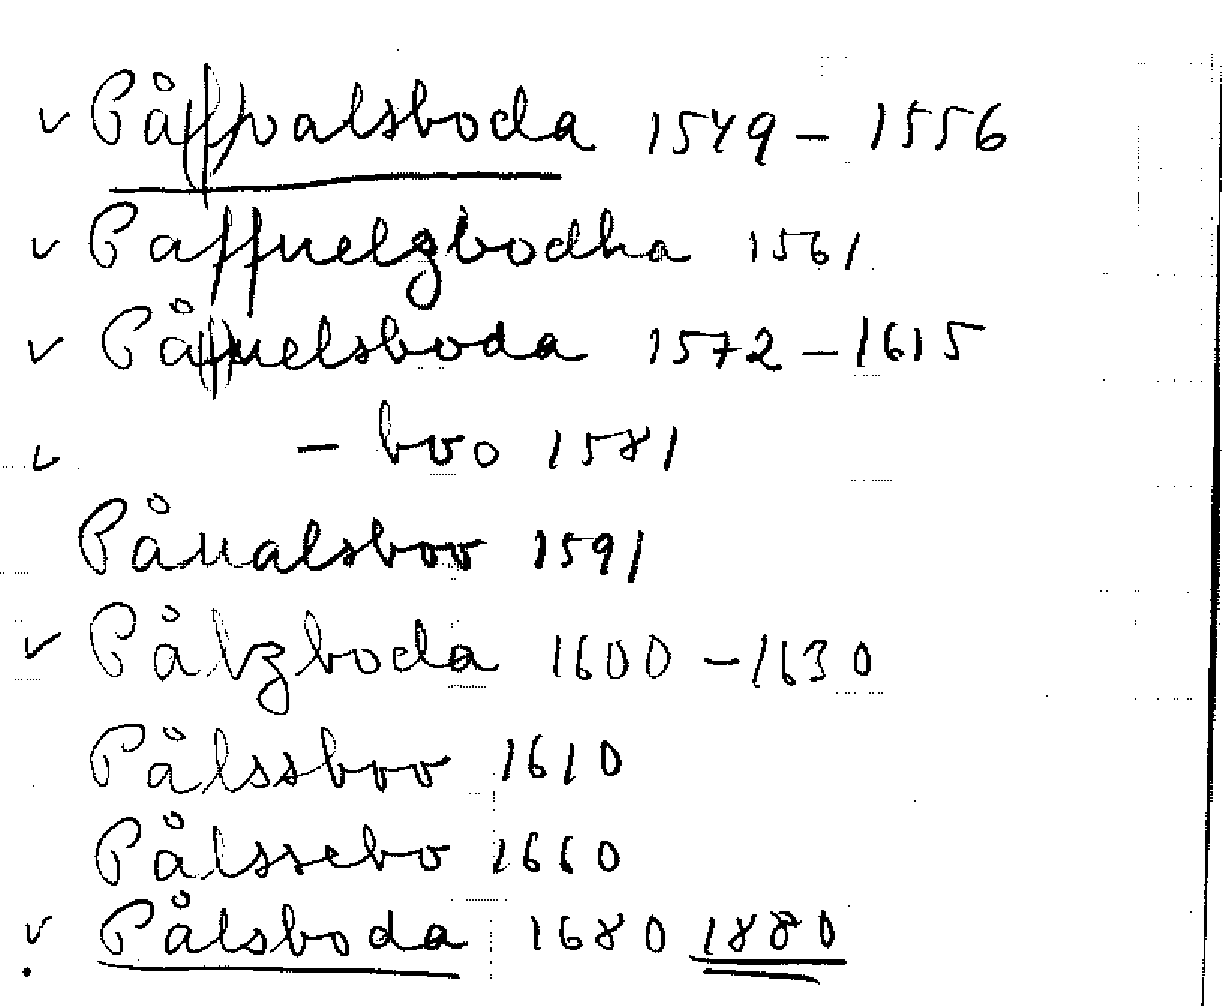 ✓ Påf(f)valsboda 1549 – 1556
✓ Paffuelzbodha 1561
✓ På(f)uelsboda 1572 – 1615
✓ – boo 1581
Påualsboo 1591
✓ Pålzboda 1600 – 1630
Pålssboo 1610
Pålssebo 1660
✓ Pålsboda 1680 1880